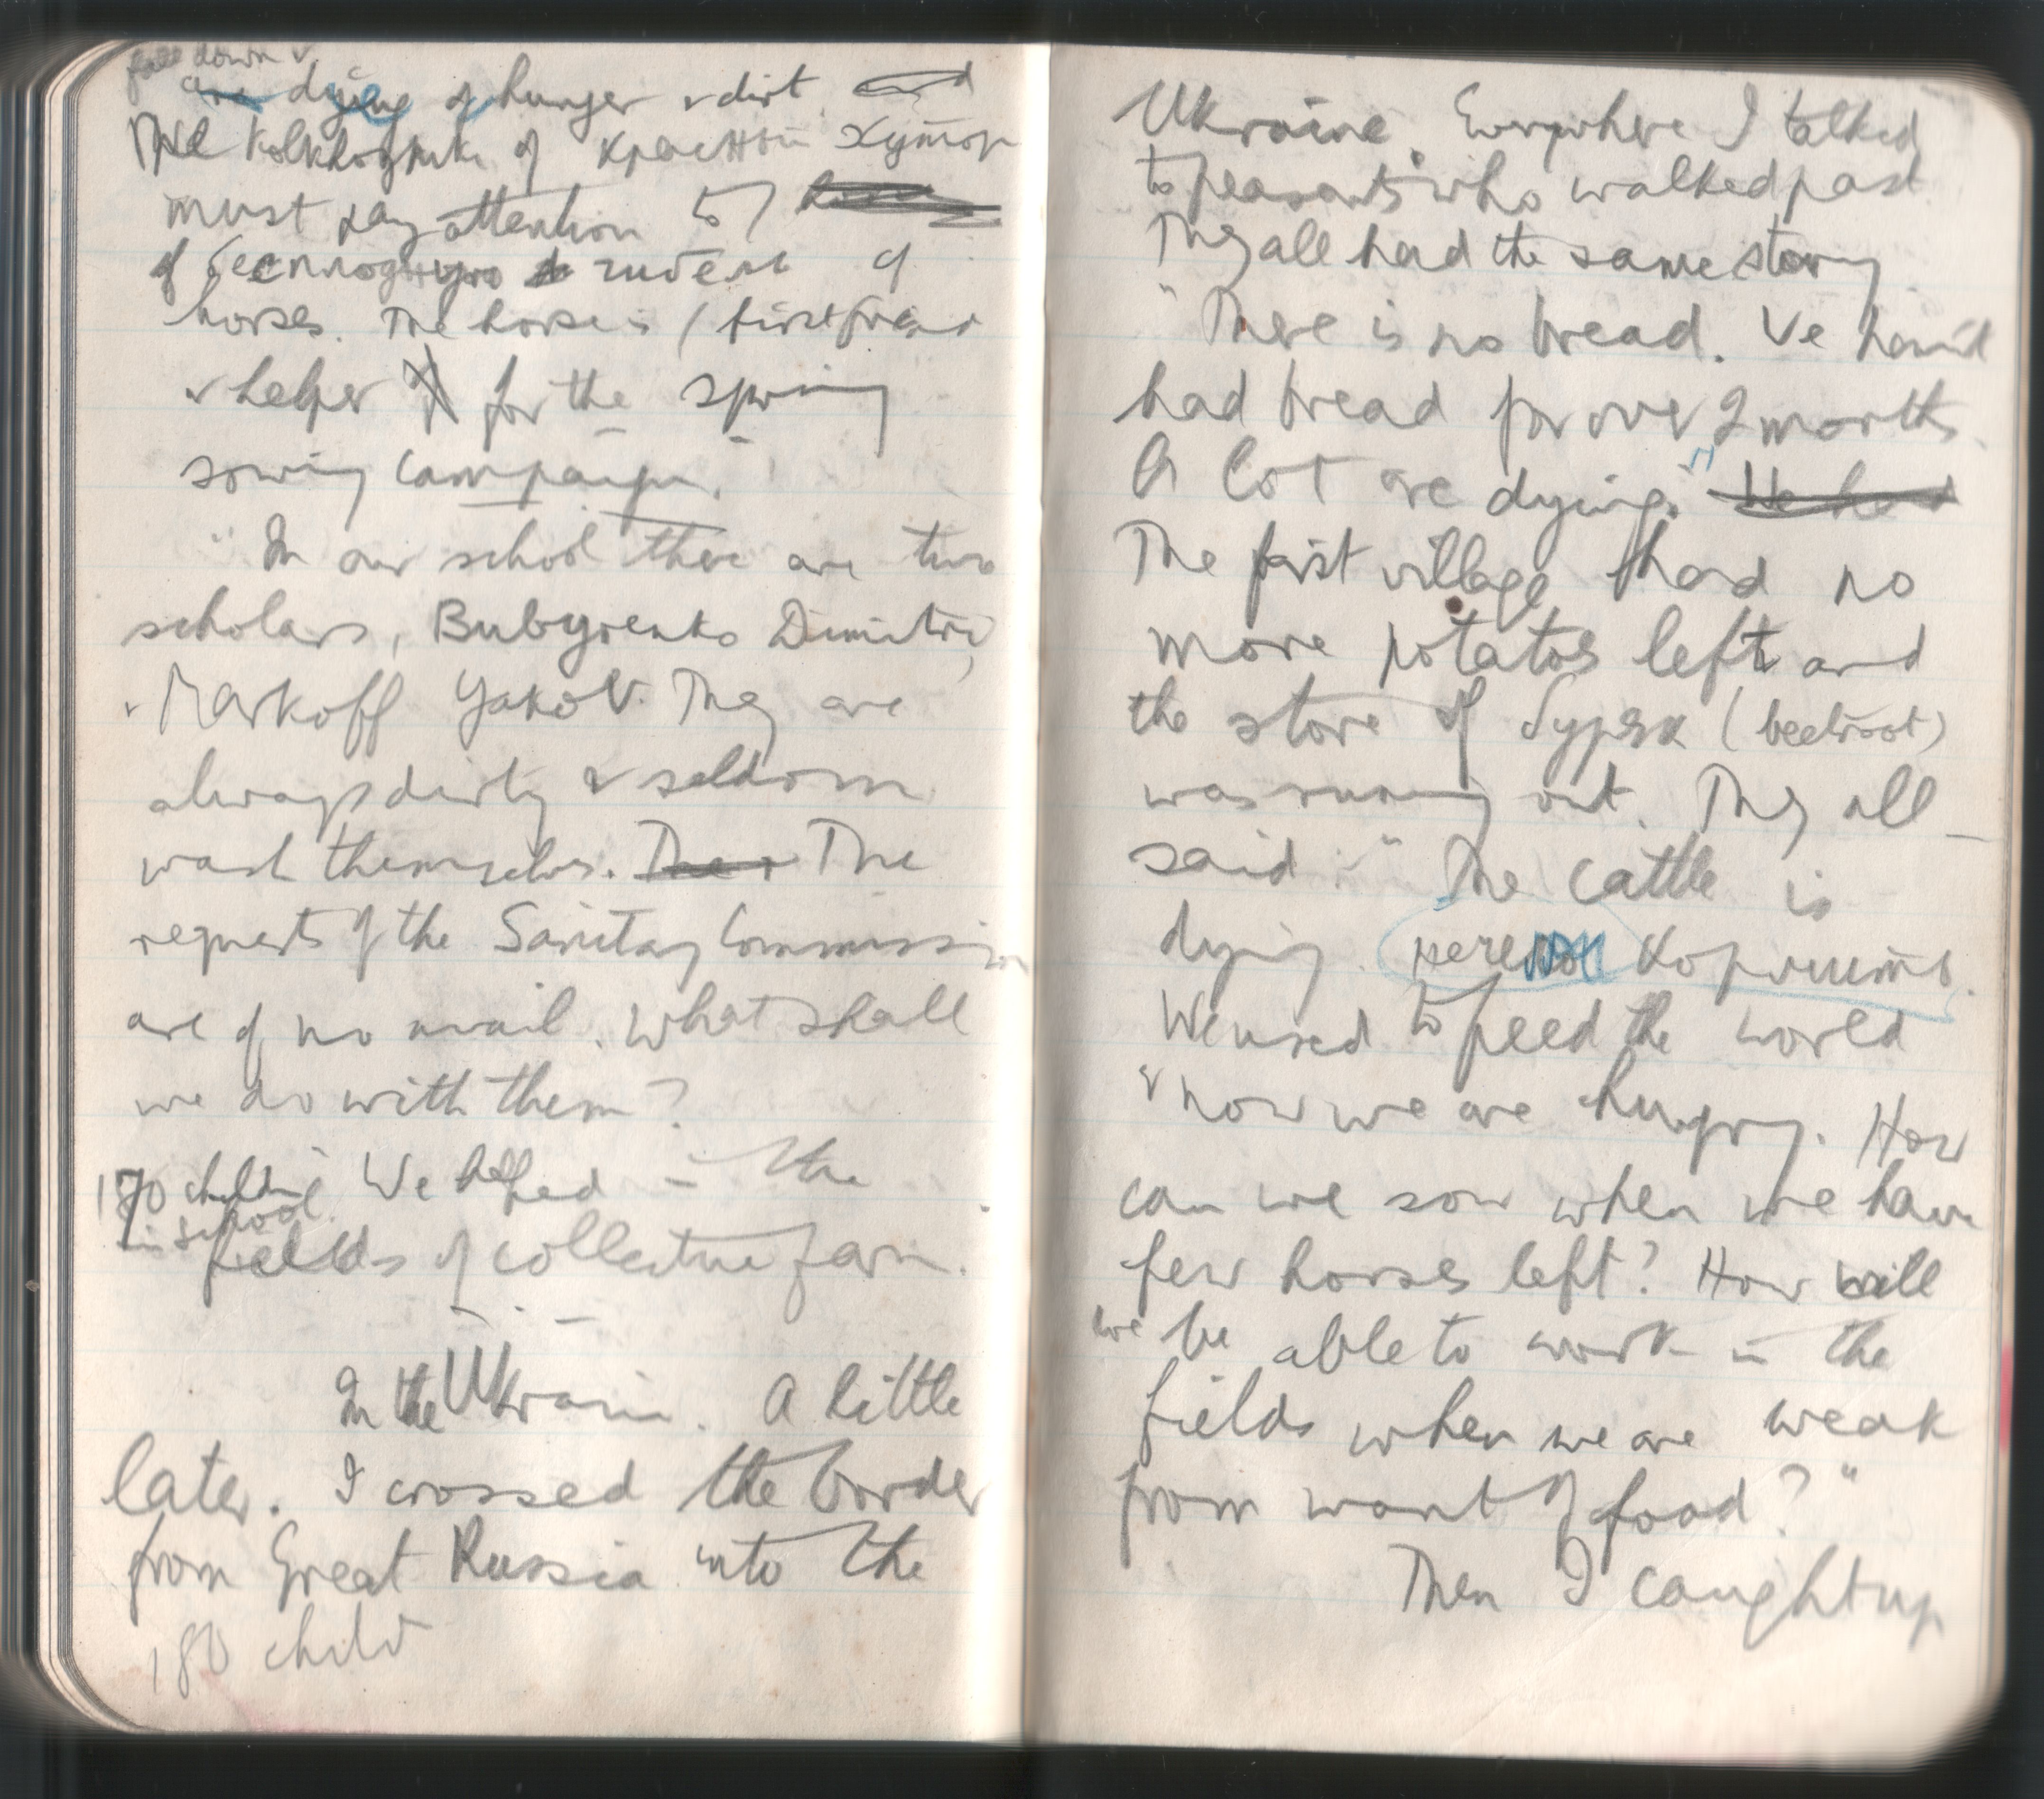 fall down &
are dying of hunger & dirt. and
The Kolkhozniks of Красный Хутор
must pay attention to
of бесплодную гибель of
horses. The horse is / first friend
& helper for the spring
sowing campaign."
"In our school there are two
scholars, Bubyrenko Dimitri,
& Markoff Yakov. They are
always dirty & seldom
wash themselves. The
requests of the Sanitary Commission
are of no avail. What shall
we do with them?
170 children We helped in the
in school.
fields of collective farm.
In the Ukraine. A little
later. I crossed the border
from Great Russia into the
180 child
Ukraine. Everywhere I talked
to peasants who walked past
They all had the same story
"There is no bread. We haven't
had bread for over 2 months.
A lot are dying." We had
The first village had no
more potatoes left and
the store of буряк (beetroot)
was running out. They all
said :- "The cattle is
dying. нечем кормить.
We used to feed the world
& now we are hungry. How
can we sow when we have
few horses left? How will
we be able to work in the
fields when we are weak
from want of food?"
Then I caught up